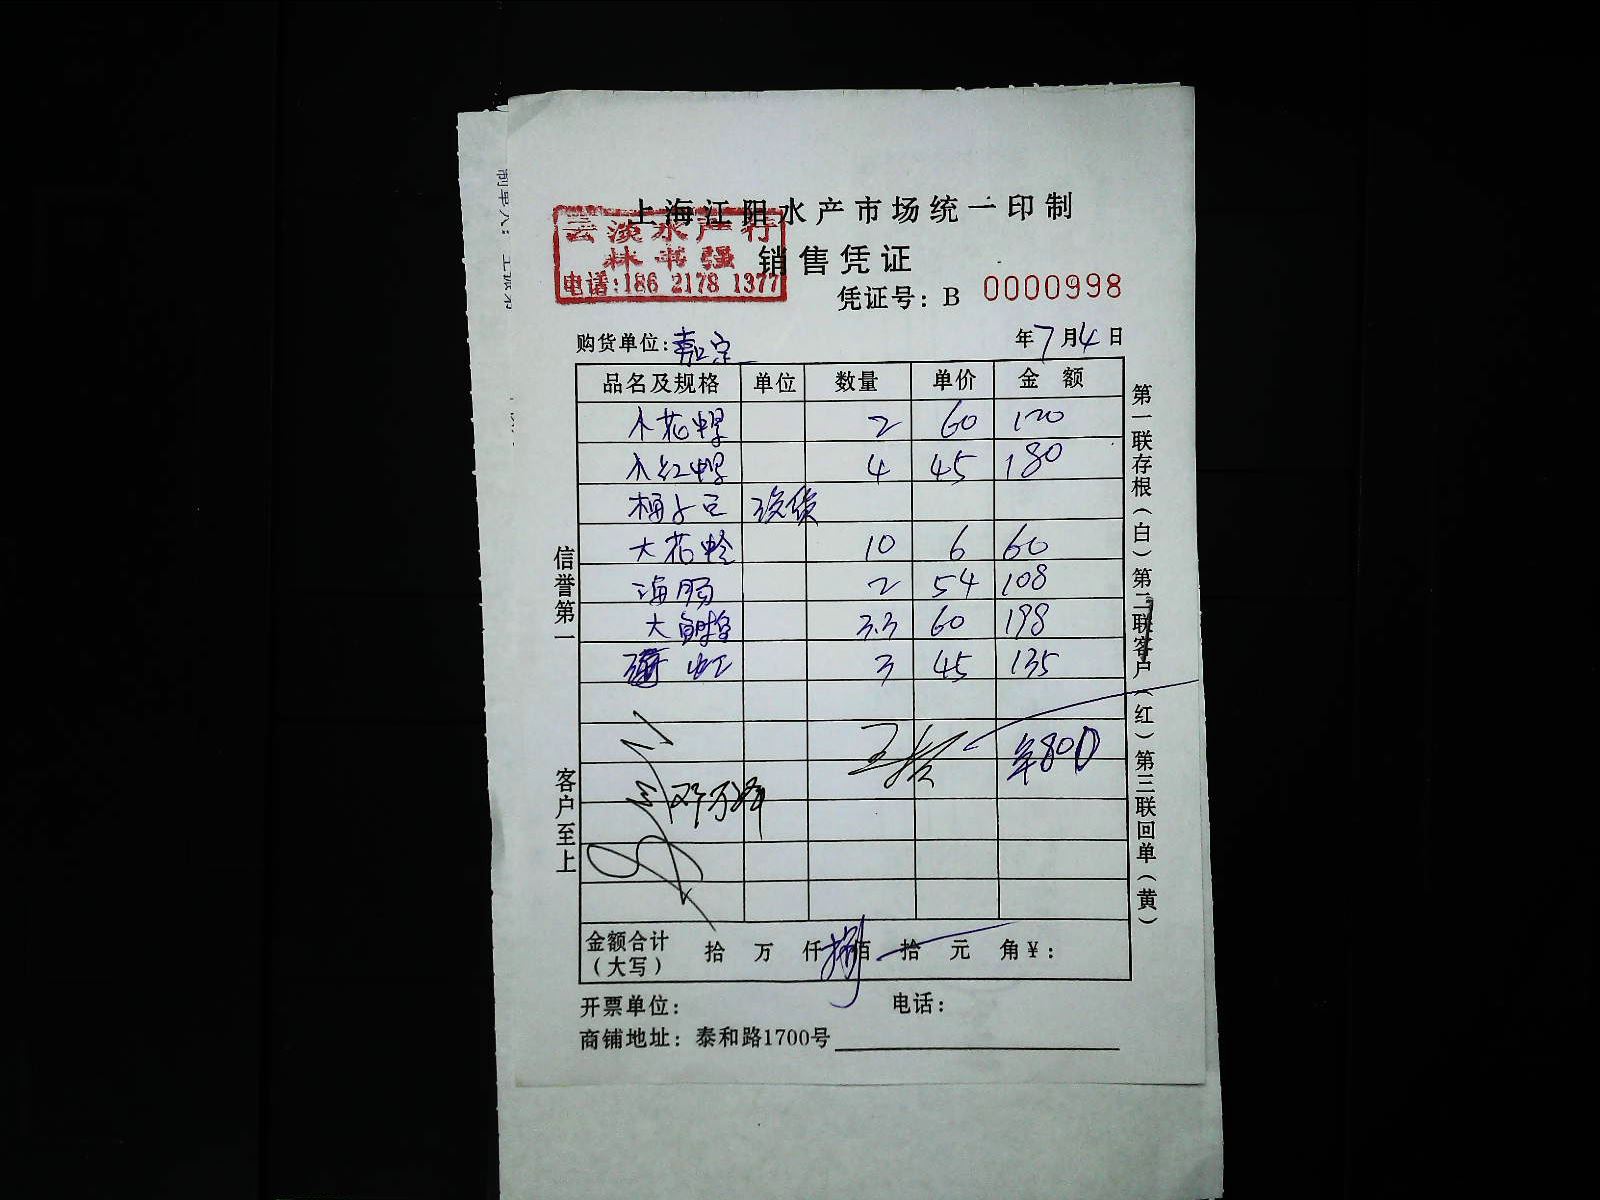 上海江阳水产市场统一印制
芸淡水产行
林书强
电话:186 2178 1377
销售凭证
凭证号: B 0000998
购货单位: 嘉定
年7月4日
品名及规格 单位 数量 单价 金额
小花 2 60 120
小红 4 45 180
没货
大花 10 6 60
海肠 2 54 108
大 3.3 60 198
3 45 135
800
金额合计（大写） 拾 万 仟 捌佰 拾 元 角 ¥:
开票单位: 电话:
商铺地址: 泰和路1700号
信誉第一
客户至上
第一联存根（白）第二联客户（红）第三联回单（黄）